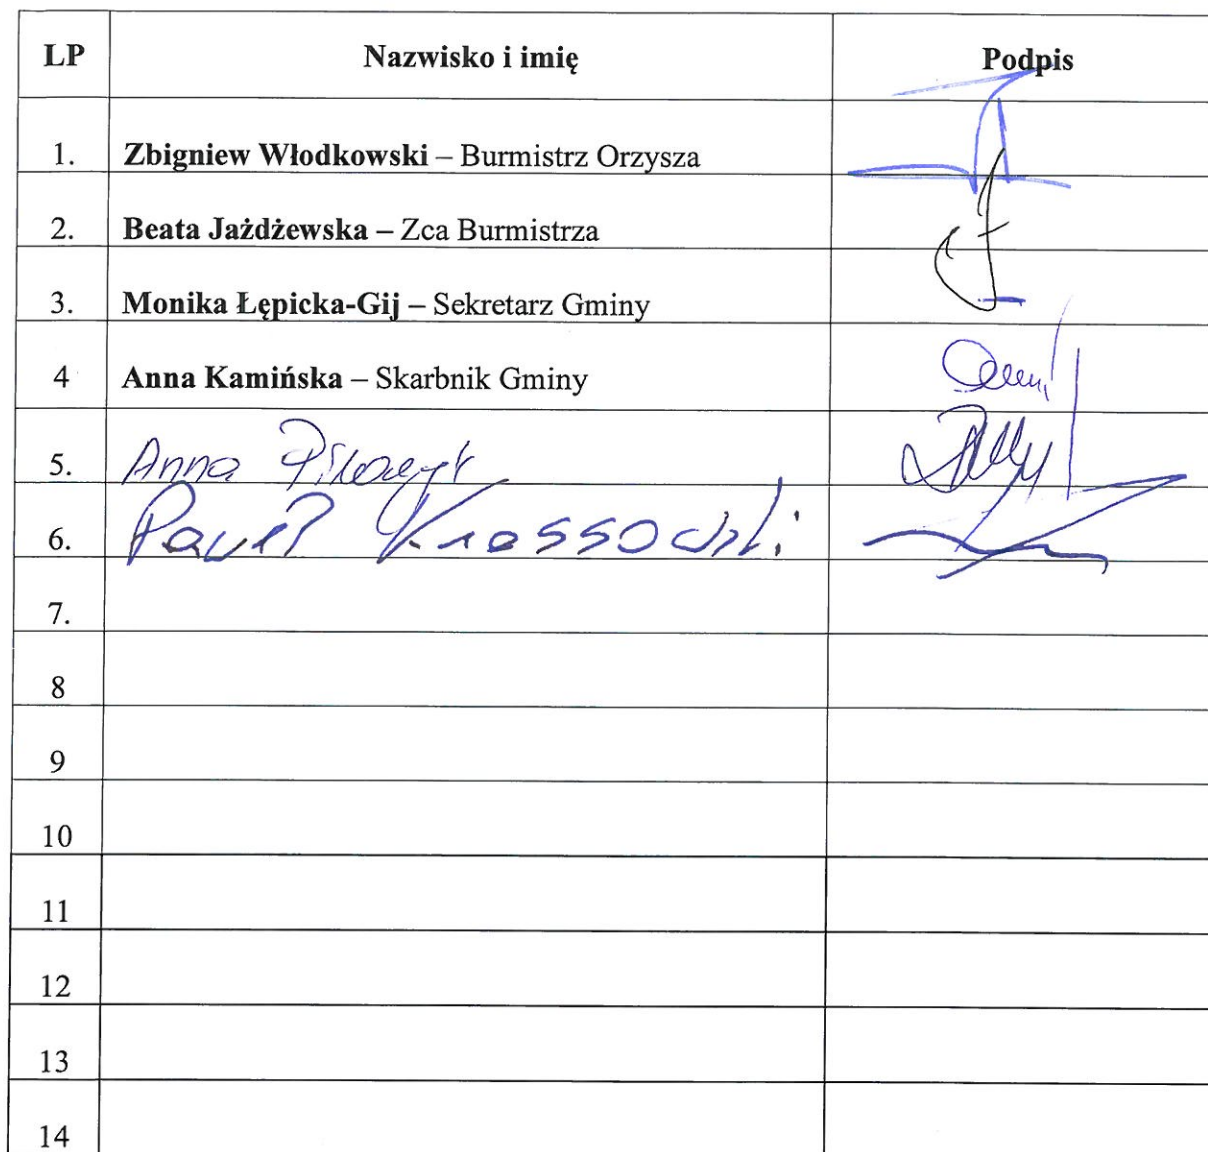 LP Nazwisko i imię Podpis
1. Zbigniew Włodkowski – Burmistrz Orzysza
2. Beata Jażdżewska – Zca Burmistrza
3. Monika Łępicka-Gij – Sekretarz Gminy
4 Anna Kamińska – Skarbnik Gminy
5. Anna
6. Paweł
7.
8
9
10
11
12
13
14